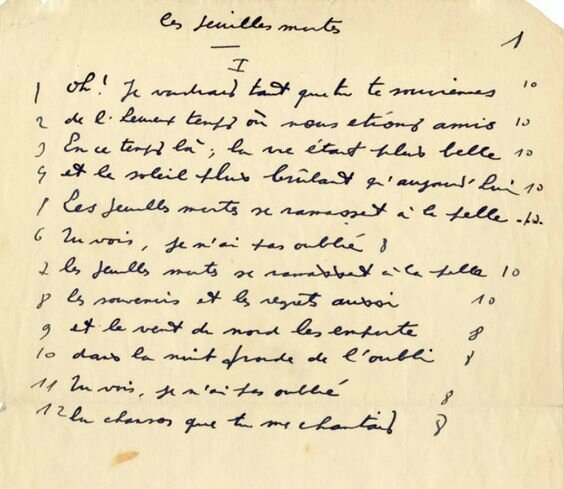 les feuilles mortes
1
I
1 Oh! Je voudrais tant que tu te souviennes 10
2 de l'heureux temps où nous étions amis 10
3 En ce temps là; la vie était plus belle 10
4 et le soleil plus brûlant qu'aujourd'hui 10
5 Les feuilles mortes se ramassent à la pelle -10-
6 Tu vois, je n'ai pas oublié 8
7 les feuilles mortes se ramassent à la pelle 10
8 les souvenirs et les regrets aussi 10
9 et le vent de nord les emporte 8
10 dans la nuit froide de l'oubli 8
11 Tu vois, je n'ai pas oublié 8
12 la chanson que tu me chantais 8